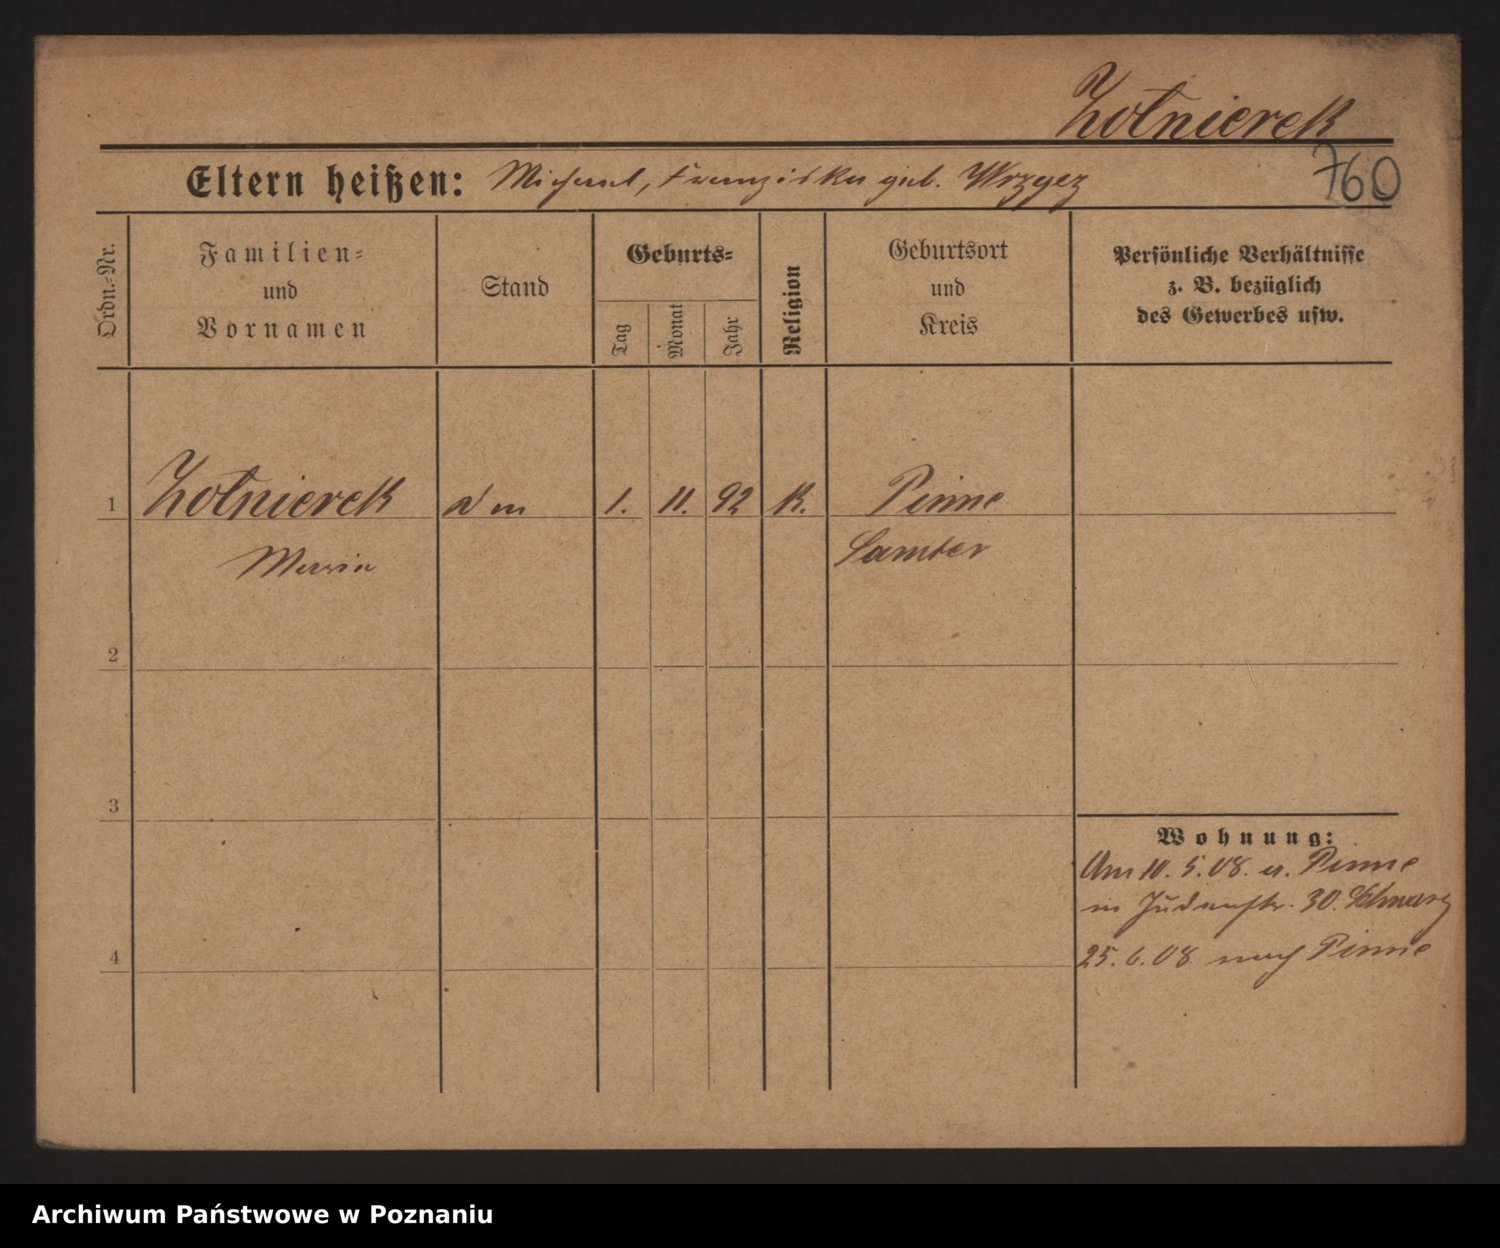 Żołnierek
Eltern heißen: Michael, Franziska geb. Wrzyez
760
Ordn.-Nr.
Familien-
und
Vornamen
Stand
Geburts-
Tag
Monat
Jahr
Religion
Geburtsort
und
Kreis
Persönliche Verhältnisse
z. B. bezüglich
des Gewerbes usw.
1 Żołnierek 1. 11. 92 K. Pinne
Maria Samter
2
3
4
Wohnung:
Am 10. 5. 08. a. Pinne
in Judenstr. 30. Schwarz
25. 6. 08 nach Pinne
Archiwum Państwowe w Poznaniu